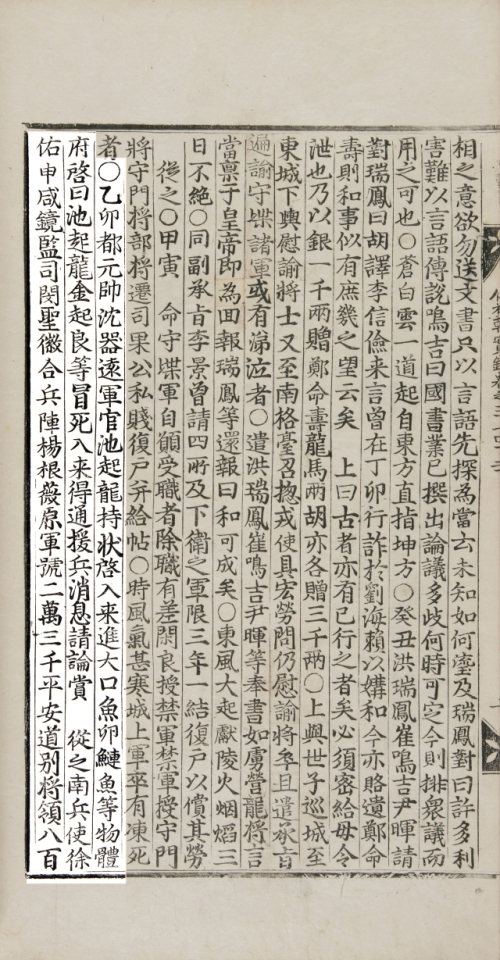 相之意欲勿送文書只以言語先探為當云未知如何瀣及瑞鳳對曰許多利
害難以言語傳說鳴吉曰國書業已撰出論議多歧何時可定今則排衆議而
用之可也○蒼白雲一道起自東方直指坤方○癸丑洪瑞鳳崔鳴吉尹暉請
對瑞鳳曰胡譯李信儉来言曾在丁卯行詐於劉海賴以媾和今亦賂遺鄭命
壽則和事似有庶幾之望云矣 上曰古者亦有已行之者矣必須密給毋令
泄也乃以銀一千兩贈鄭命壽龍馬兩胡亦各贈三千兩○上與世子巡城至
東城下輿慰諭將士又至南格臺召摠戎使具宏勞問仍慰諭將卒且遣承旨
遍諭守堞諸軍或有涕泣者○遣洪瑞鳳崔鳴吉尹暉等奉書如虜營龍將言
當稟于皇帝即為回報瑞鳳等還報曰和可成矣○東風大起獻陵火烟熖三
日不絶○同副承旨李景曾請四所及下衛之軍限三年一結復戶以償其勞
從之○甲寅 命守堞軍自願受職者除職有差閑良授禁軍禁軍授守門
將守門將部將遷司果公私賤復戶并給帖○時風氣甚寒城上軍卒有凍死
者○乙卯都元帥沈器遠軍官池起龍持狀啓入来進大口魚卵鰱魚等物體
府啓曰池起龍金起良等冒死入来得通援兵消息請論賞 從之南兵使徐
佑申咸鏡監司閔聖徽合兵陣楊根薇原軍號二萬三千平安道別將領八百